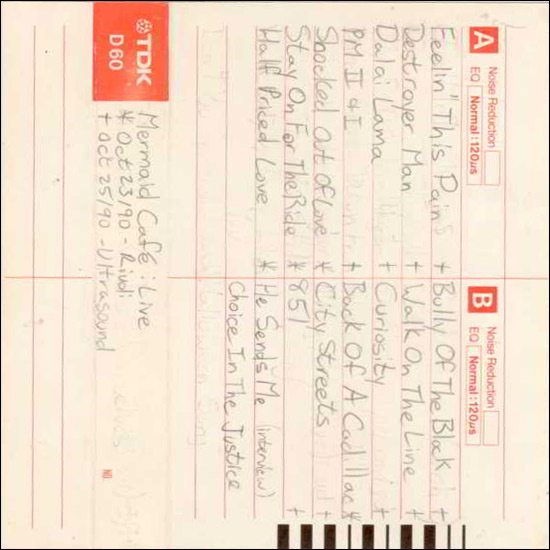 A Noise Reduction
EQ Normal:120µs
Feelin' This Pain +
Destroyer Man +
Dalai Lama +
PM I & I +
Shocked Out Of Love *
Stay On For The Ride *
Half Priced Love *
B Noise Reduction
EQ Normal:120µs
Bully Of The Block +
Walk On The Line +
Curiosity
Back Of A Cadillac *
City Streets
851 +
He Sends Me (interview)
Choice In The Justice
TDK
D60
Mermaid Café: Live
* Oct 23/90 - Rivoli
+ Oct 25/90 - Ultrasound
NO.